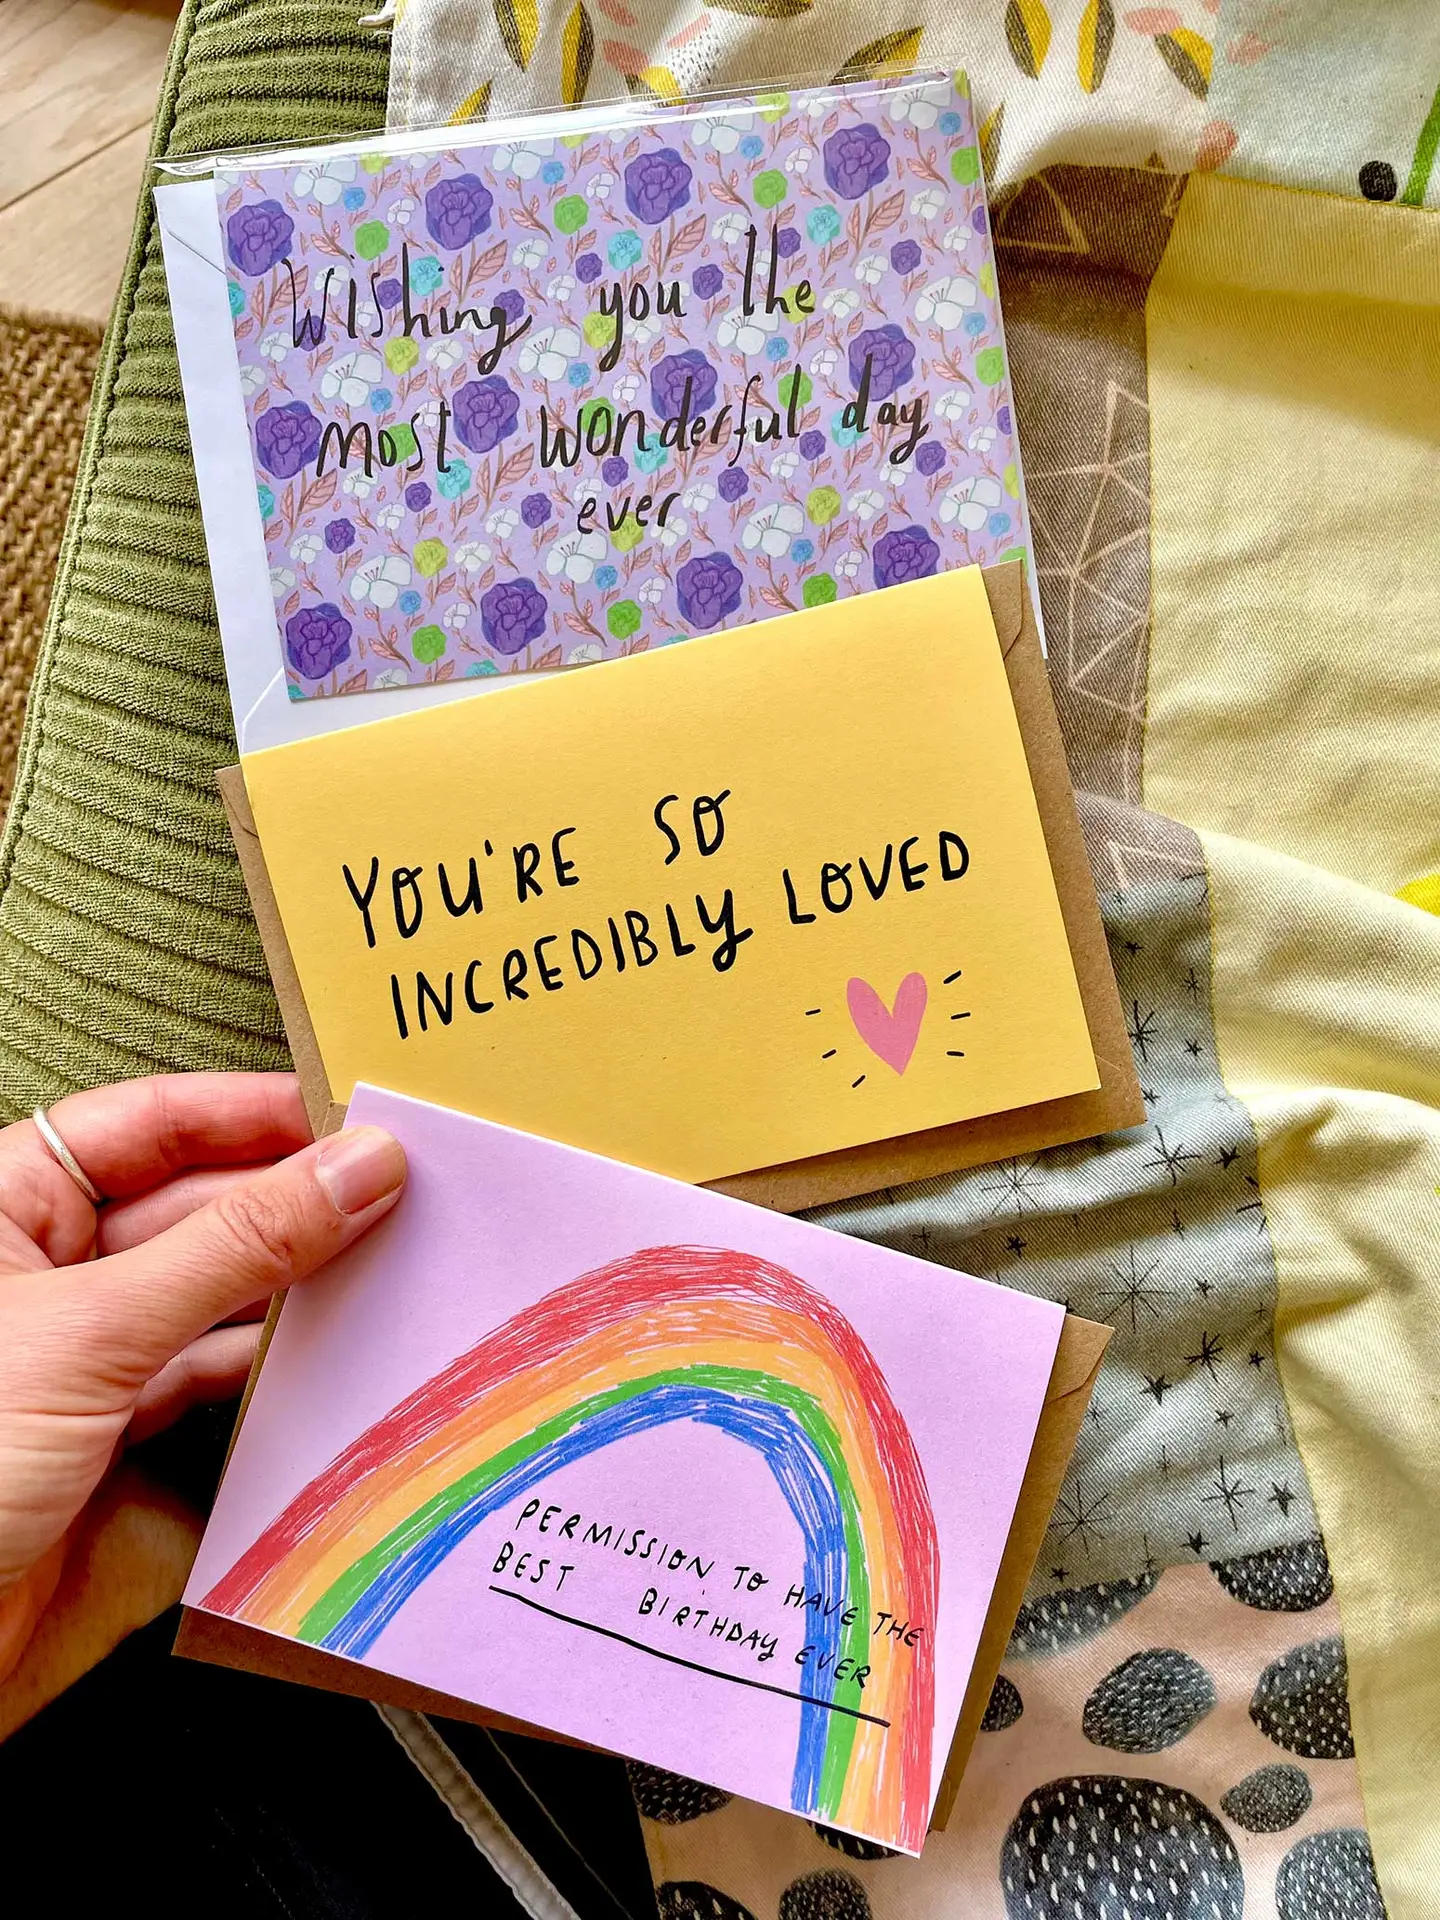 Wishing you the
most wonderful day
ever
YOU'RE SO
INCREDIBLY LOVED
PERMISSION TO HAVE THE
BEST BIRTHDAY EVER